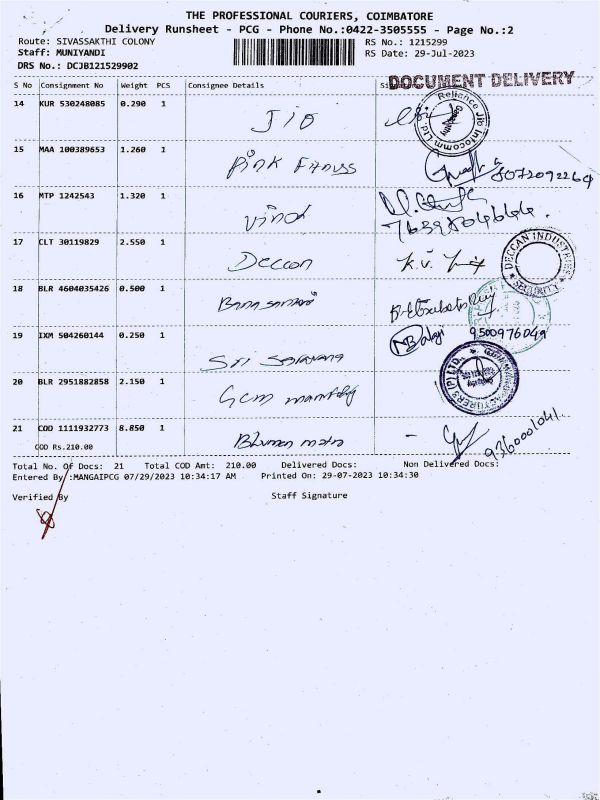 THE PROFESSIONAL COURIERS, COIMBATORE
Delivery Runsheet - PCG - Phone No.:0422-3505555 - Page No.:2
Route: SIVASSAKTHI COLONY RS No.: 1215299
Staff: MUNIYANDI RS Date: 29-Jul-2023
DRS No.: DCJB121529902
DOCUMENT DELIVERY
S No Consignment No Weight PCS Consignee Details
14 KUR 530248085 0.290 1 JIO
Reliance Jio Infocomm Ltd
15 MAA 100389653 1.260 1 Pink Fitness
8072092264
16 MTP 1242543 1.320 1 Vinod
17 CLT 30119829 2.550 1 Deccon K.V.
DECCAN INDUSTRIES SECURITY
18 BLR 4604035426 0.500 1
19 IXM 504260144 0.250 1 Sri Saravana Balagi 9500976049
20 BLR 2951882858 2.150 1 Gcm
21 COD 1111932773 8.850 1 - 9360001041.
COD Rs.210.00
Total No. Of Docs: 21 Total COD Amt: 210.00 Delivered Docs: Non Delivered Docs:
Entered By :MANGAIPCG 07/29/2023 10:34:17 AM Printed On: 29-07-2023 10:34:30
Verified By Staff Signature